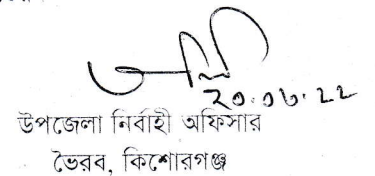 ২০.০৬.২২
উপজেলা নির্বাহী অফিসার
ভৈরব, কিশোরগঞ্জ